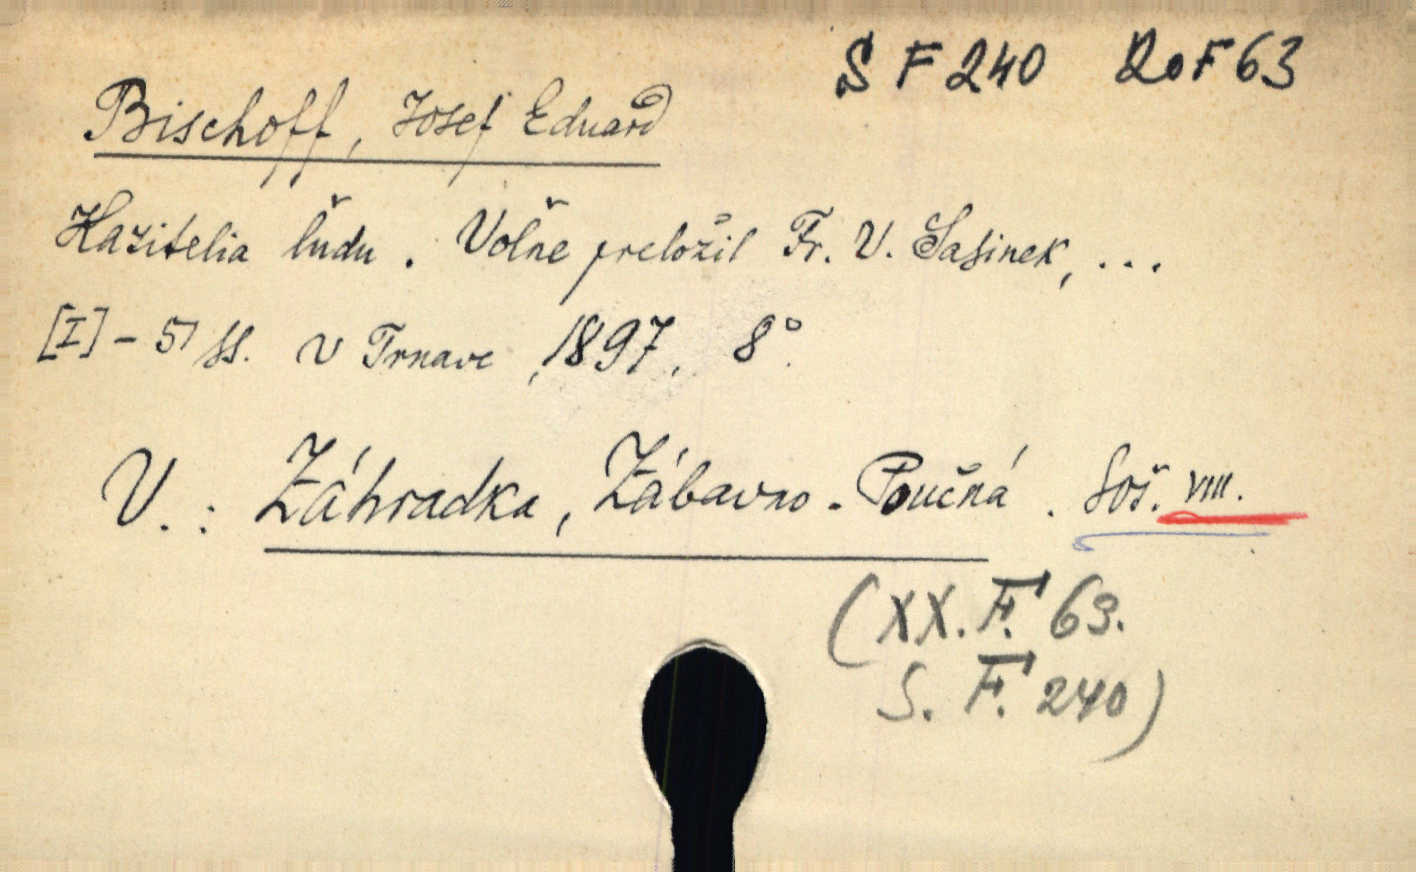 S F 240 20 F 63
Bischoff, Josef Eduard
Kazitelia ľudu. Voľne preložil Fr. V. Sasinek, ...
[I] - 51 ss. V Trnave, 1897. 8°.
V.: Záhradka, Zábavno-Poučná. Soš. VIII.
(XX. F. 63.
S. F. 240)